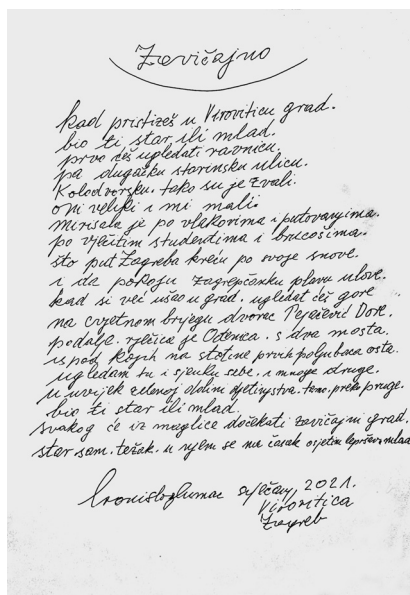 Zavičajno
kad pristižeš u Viroviticu grad.
bio ti, star ili mlad.
prvo ćeš ugledati ravnicu.
pa dugačku starinsku ulicu.
Kolodvorsku. tako su je zvali.
oni veliki i mi mali.
mirisala je po vlakovima i putovanjima.
po vječitim studentima i brucošima.
što put Zagreba kreću po svoje snove.
i da pokoju zagrepčanku plavu ulove.
kad si već ušao u grad. ugledat ćeš gore
na cvjetnom brijegu dvorec Pejačević Dore.
podalje. rječica je Ođenica. s dva mosta.
ispod kojih na stotine prvih poljubaca osta.
ugledam tu i sjenku sebe. i mnoge druge.
u uvijek zelenoj dolini djetinjstva. tamo. preko pruge.
bio ti star ili mlad.
svakog će iz maglice dočekati zavičajni grad.
star sam. težak. u njem se na časak osjetim lepršavo mlad
siječanj, 2021.
Virovitica
Zagreb